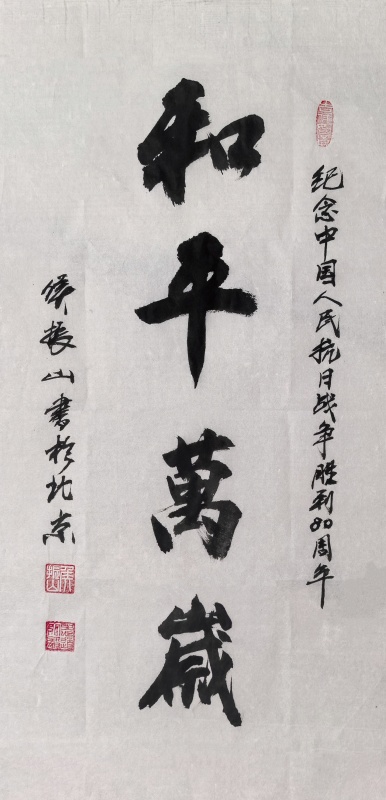 纪念中国人民抗日战争胜利80周年
和平萬歲
侯振山书於北京